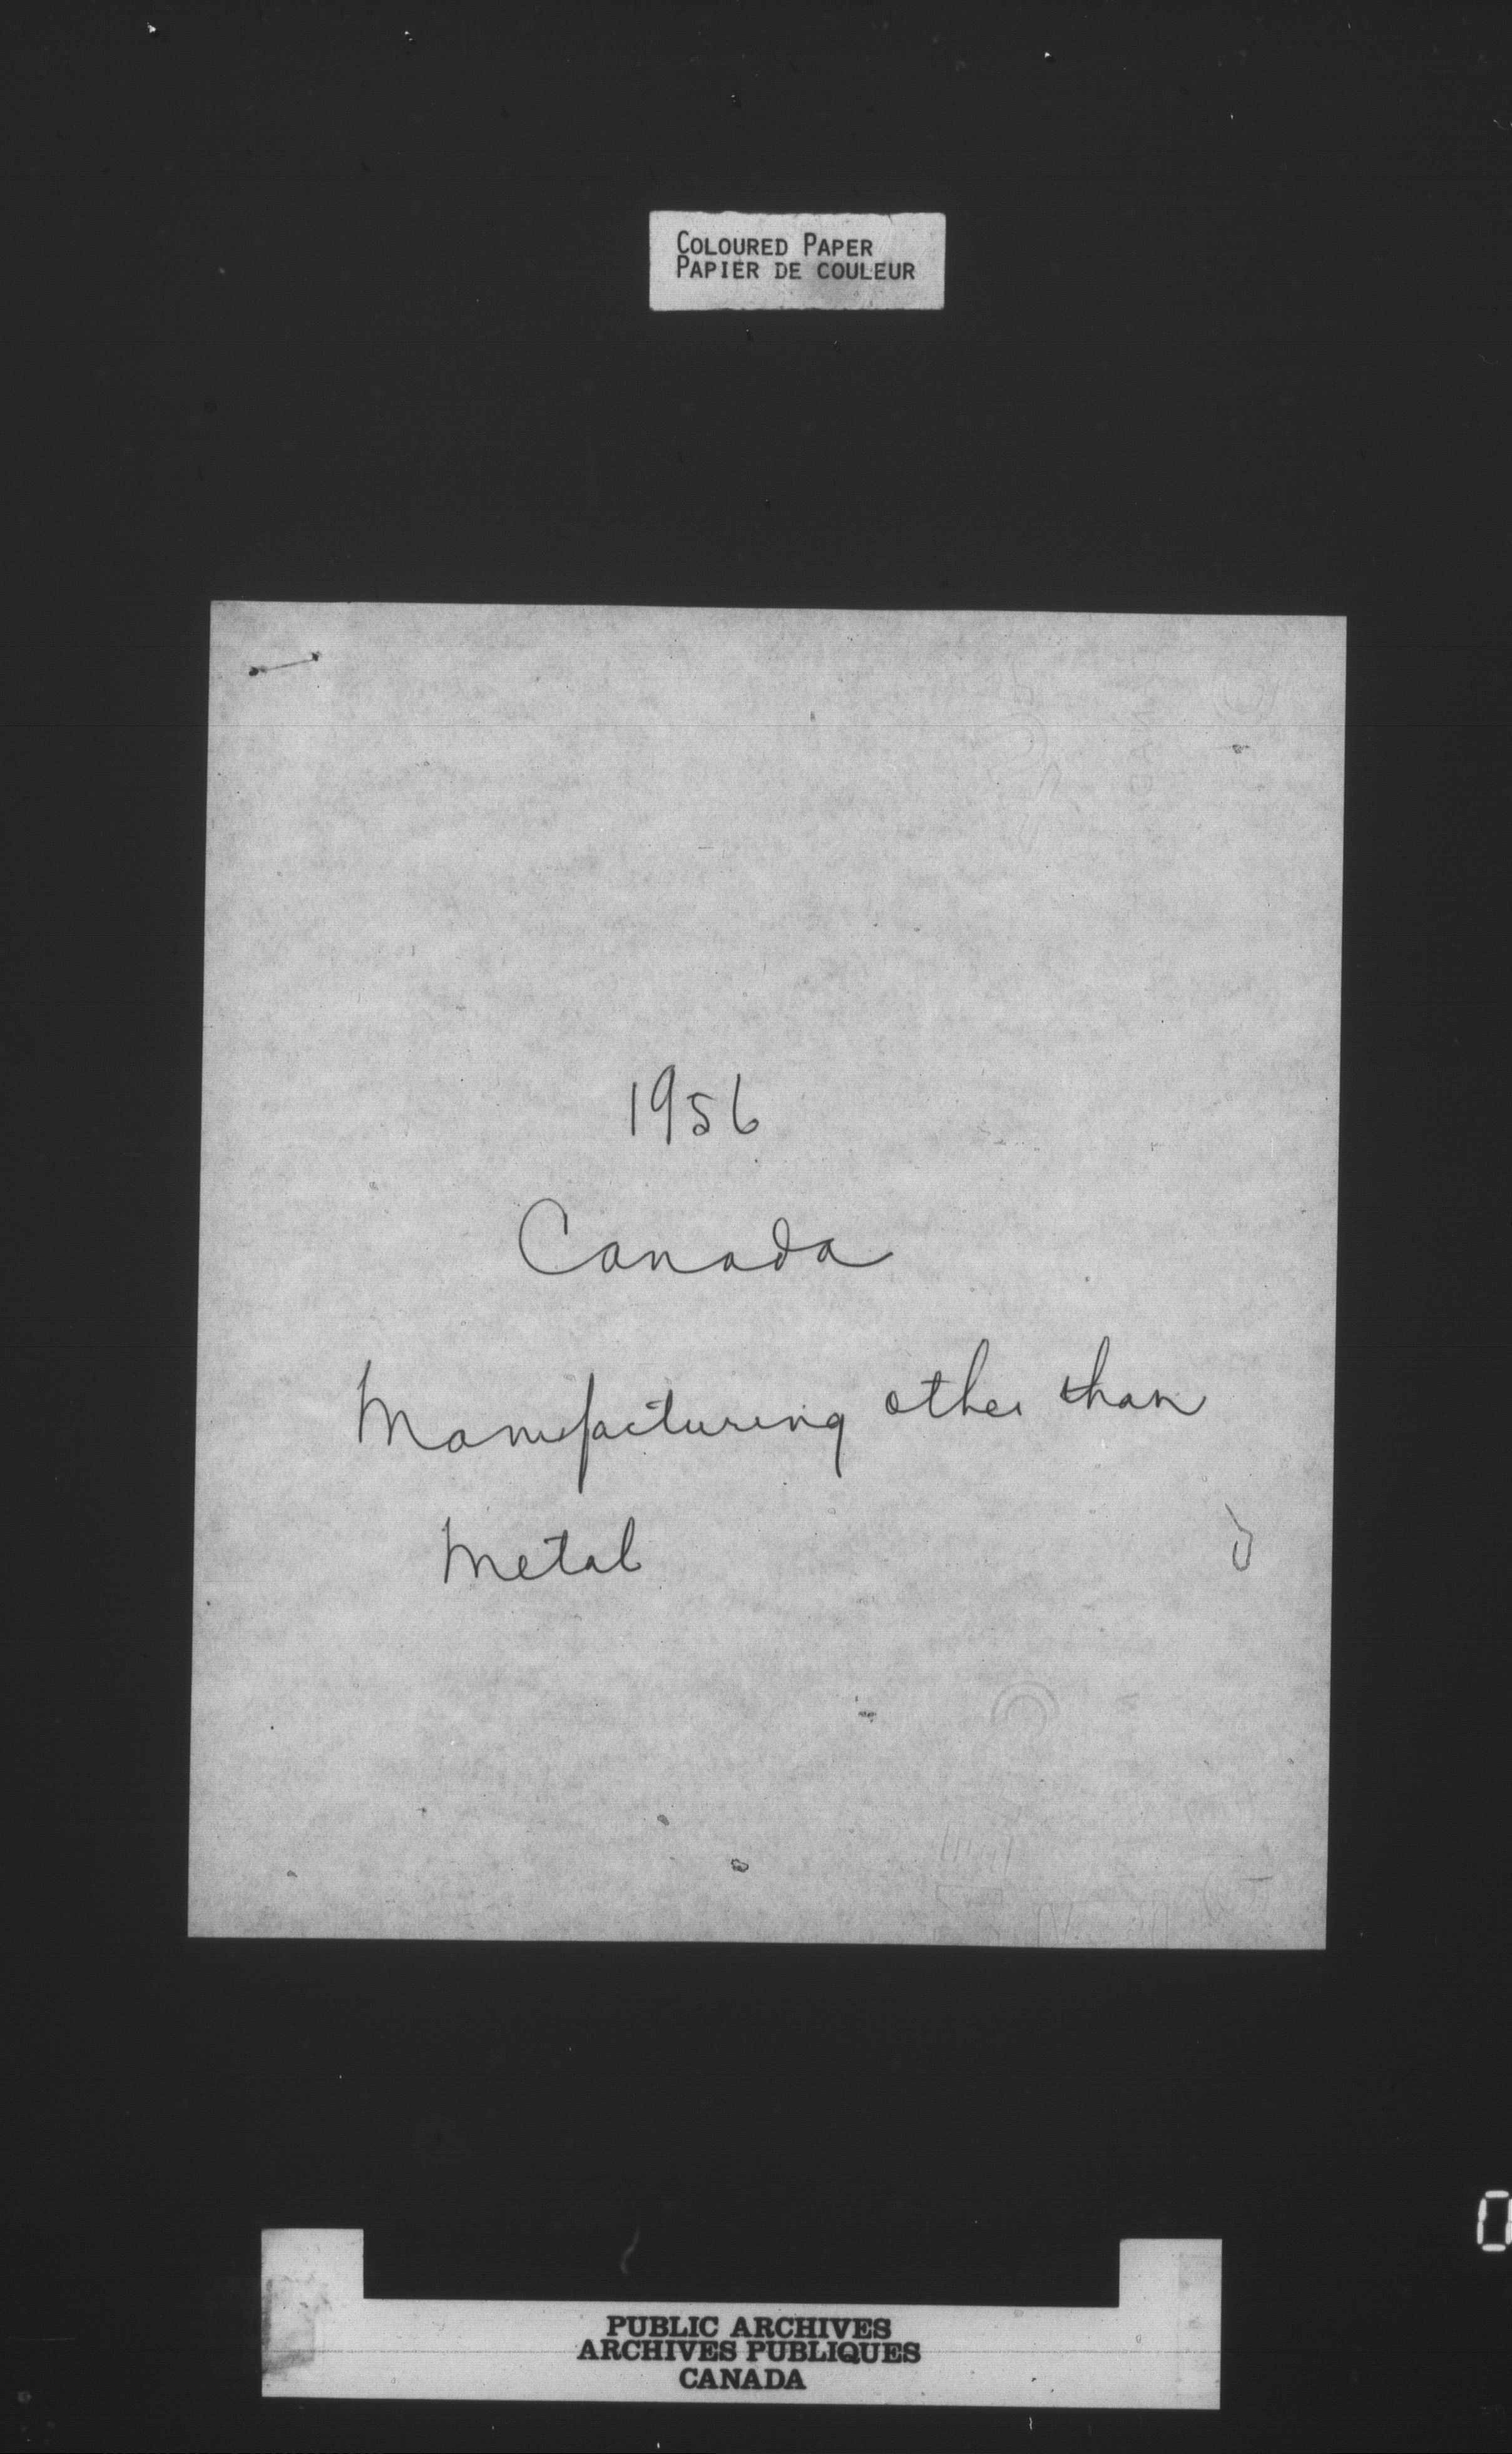 COLOURED PAPER
PAPIER DE COULEUR
1956
Canada
Manufacturing other than
Metal
PUBLIC ARCHIVES
ARCHIVES PUBLIQUES
CANADA